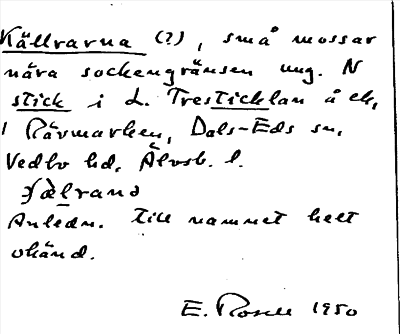 Källrarna (?), små mossar
nära sockengränsen ung. N
stick i L. Tresticklan å ek,
i Rävmarken, Dals-Eds sn,
Vedbo hd, Älvsb. l.
Anledn. till namnet helt
okänd.
E. Rosell 1950